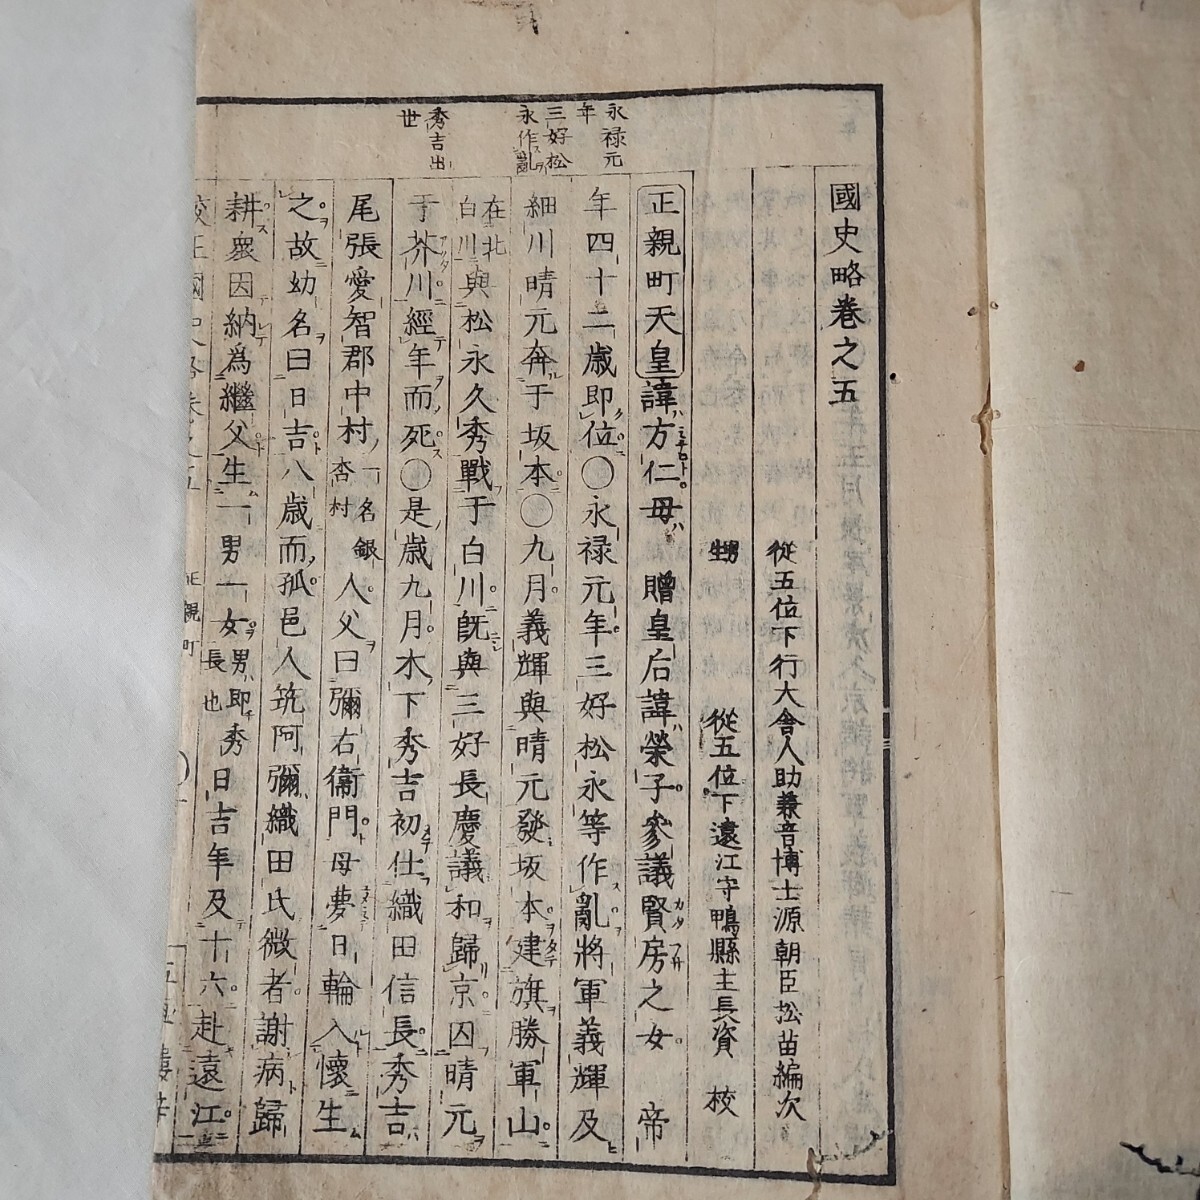 國史略卷之五
從五位下行大舍人助兼音博士源朝臣松苗編次
甥 從五位下遠江守鴨縣主長資 校
正親町天皇諱方仁母贈皇后諱榮子參議賢房之女 帝
年四十二歲即位〇永禄元年三好松永等作亂將軍義輝及
細川晴元奔于坂本〇九月義輝與晴元發坂本建旗勝軍山
在北白川與松永久秀戰于白川既與三好長慶議和歸京囚晴元
于芥川經年而死〇是歲九月木下秀吉初仕織田信長秀吉
尾張愛智郡中村一名銀杏村人父曰彌右衞門母夢日輪入懷生
之故幼名曰日吉八歲而孤邑人筑阿彌織田氏微者謝病歸
耕衆因納爲繼父生一男一女男即秀長也日吉年及十六赴遠江
永禄元年
三好松永作亂
秀吉出世
校正國史略卷之五
正親町